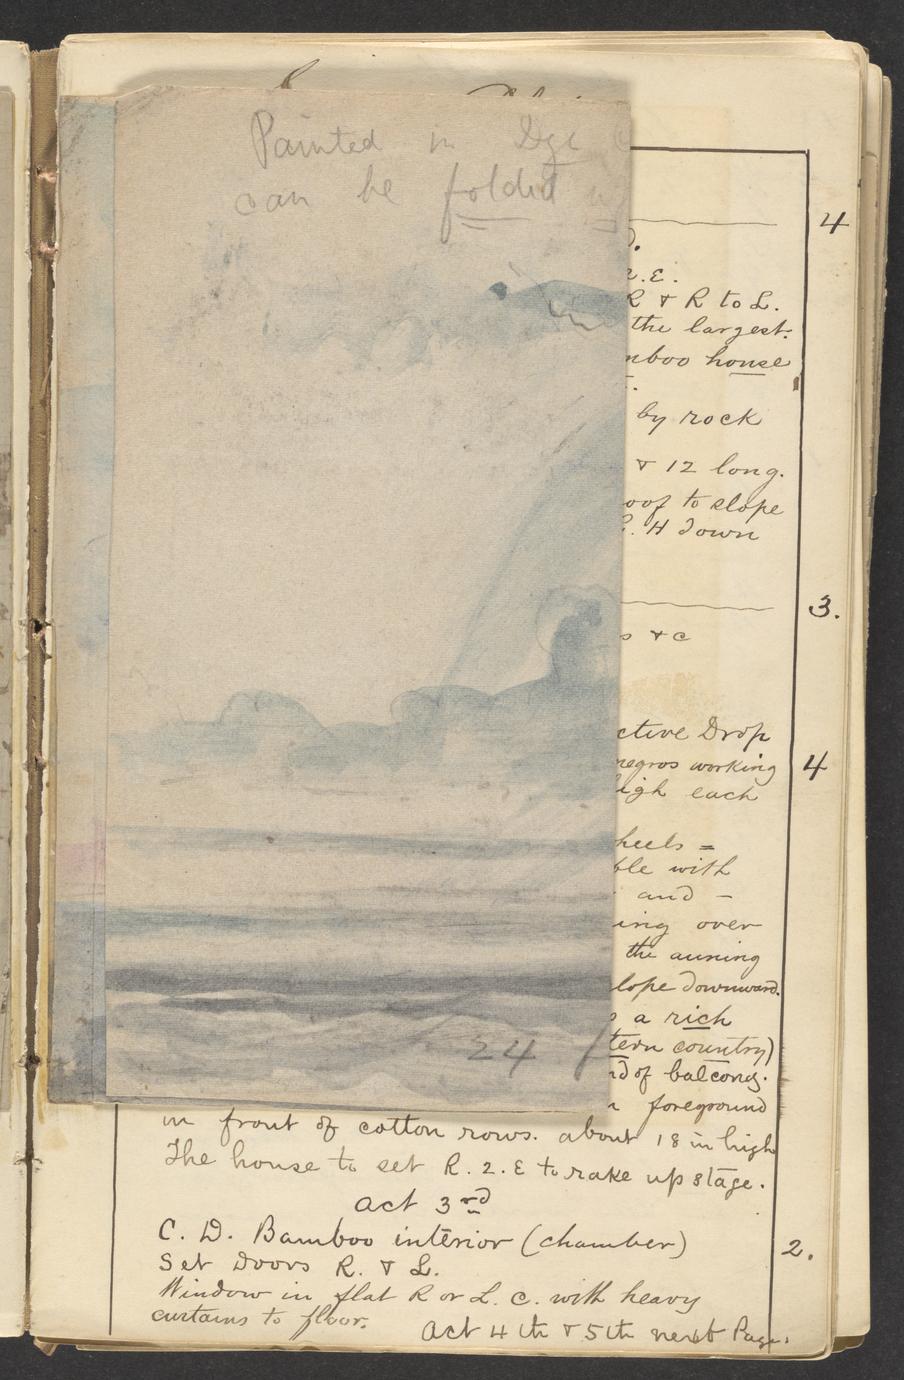 Painted in Dye
can be folded up
4
R & R to L.
the largest.
mboo house
by rock
& 12 long.
oof to slope
H down
3.
s & c
ctive Drop
negros working
4
igh each
heels =
ble with
and –
ing over
the auning
lope downward.
a rich
tern country)
nd of balcony.
24
foreground
in front of cotton rows. about 18 in high
The house to set R. 2. E to rake up stage.
Act 3rd
C. D. Bamboo interior (chamber)
2.
Set Doors R. & L.
Window in flat R or L. C. with heavy
curtains to floor.
Act 4th & 5th next Page.